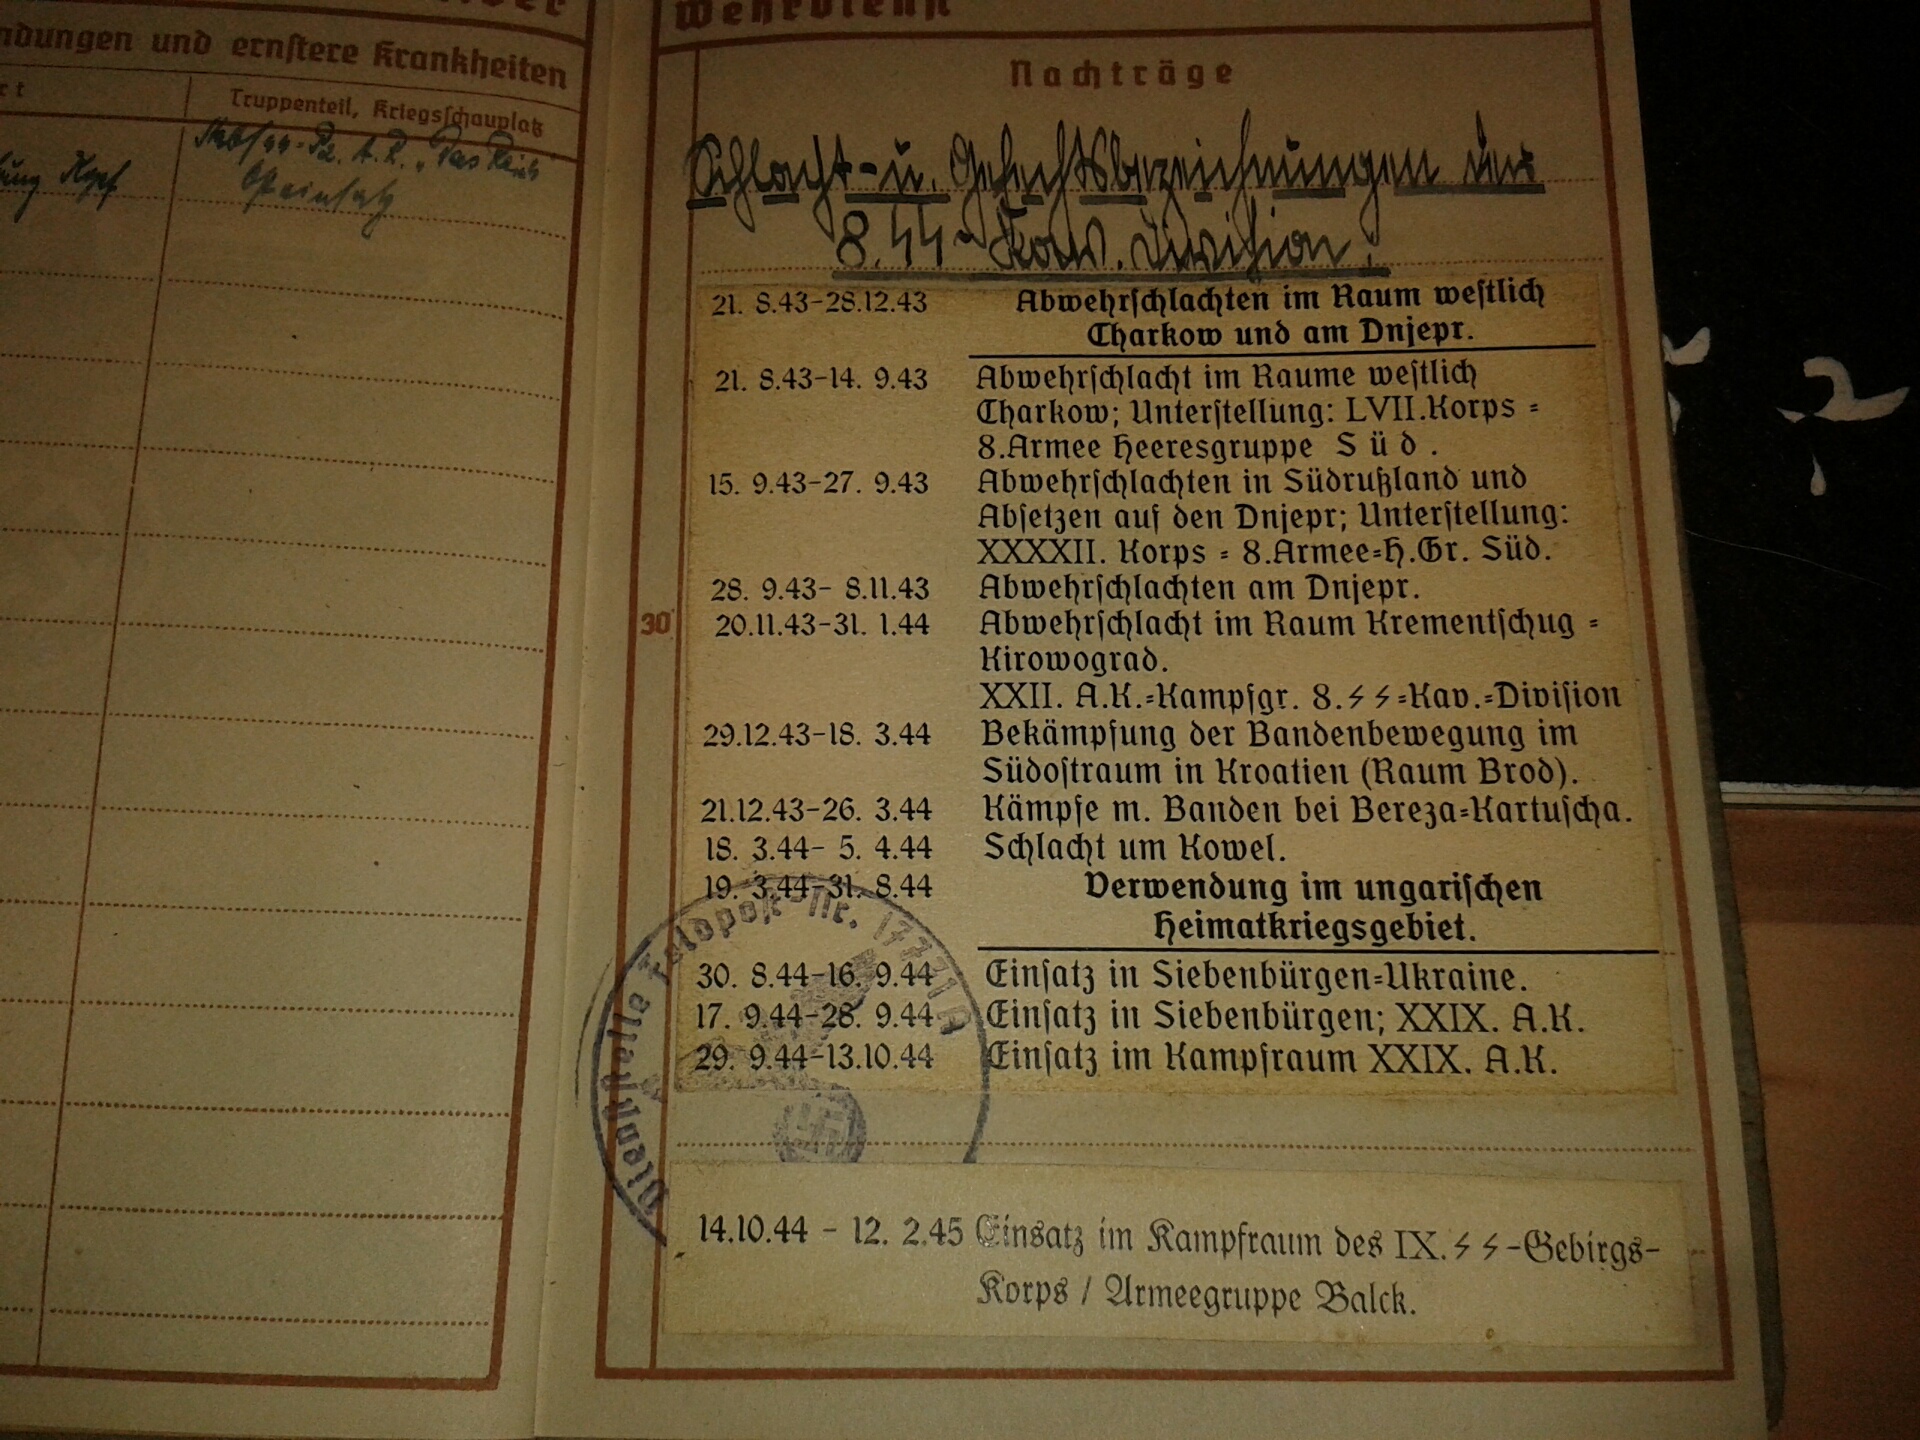 ndungen und ernstere Krankheiten
rt
Truppenteil, Kriegsschauplatz
Stab/SS-Pz. A.R. „Das Reich"
Kopf
Osteinsatz
Wehrdienst
Nachträge
Schlacht- u. Gefechtsbezeichnungen der
8. SS-Kav. Division:
21. 8.43-28.12.43 Abwehrschlachten im Raum westlich
Charkow und am Dnjepr.
21. 8.43-14. 9.43 Abwehrschlacht im Raume westlich
Charkow; Unterstellung: LVII.Korps =
8.Armee Heeresgruppe S ü d .
15. 9.43-27. 9.43 Abwehrschlachten in Südrußland und
Absetzen auf den Dnjepr; Unterstellung:
XXXXII. Korps = 8.Armee=H.Gr. Süd.
28. 9.43- 8.11.43 Abwehrschlachten am Dnjepr.
30
20.11.43-31. 1.44 Abwehrschlacht im Raum Krementschug =
Kirowograd.
XXII. A.K.=Kampfgr. 8.SS=Kav.=Division
29.12.43-18. 3.44 Bekämpfung der Bandenbewegung im
Südostraum in Kroatien (Raum Brod).
21.12.43-26. 3.44 Kämpfe m. Banden bei Bereza=Kartuscha.
18. 3.44- 5. 4.44 Schlacht um Kowel.
19. 3.44-31. 8.44 Verwendung im ungarischen
Heimatkriegsgebiet.
30. 8.44-16. 9.44 Einsatz in Siebenbürgen=Ukraine.
17. 9.44-28. 9.44 Einsatz in Siebenbürgen; XXIX. A.K.
29. 9.44-13.10.44 Einsatz im Kampfraum XXIX. A.K.
Dienststelle Feldpost-Nr.
14.10.44 - 12. 2.45 Einsatz im Kampfraum des IX.SS-Gebirgs-
Korps / Armeegruppe Balck.